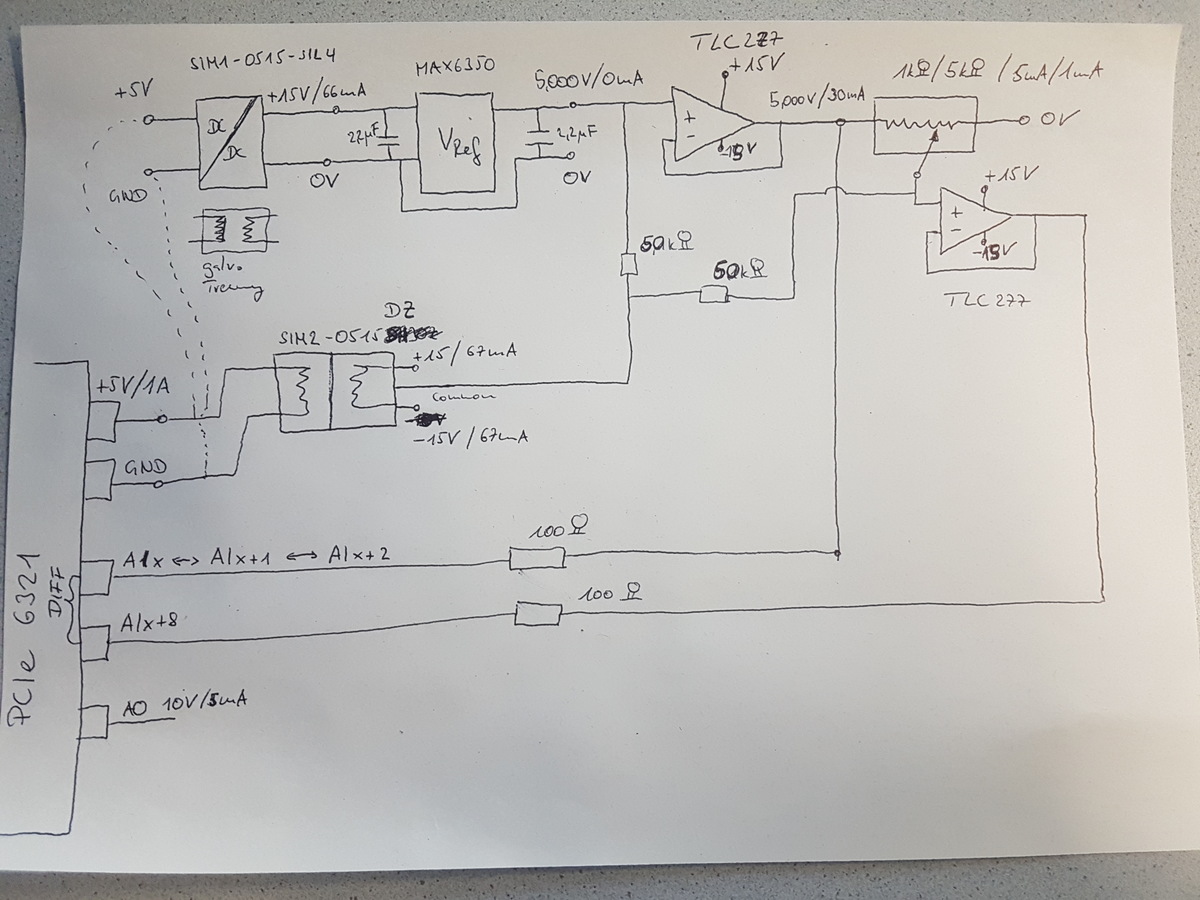 SIM1-0515-SIL4
MAX6350
TLC277
+5V
+15V/66mA
5,000V/0mA
+15V
1kΩ/5kΩ/5mA/1mA
5,000V/30mA
DC
DC
22µF
VRef
2,2µF
+
-
-15V
0V
GND
0V
0V
+15V
+
-
-15V
galv.
Trennung
50kΩ
50kΩ
TLC277
DZ
SIM2-0515
+15/67mA
common
-15V/67mA
+5V/1A
GND
PCIe 6321
DIFF
AIx ↔ AIx+1 ↔ AIx+2
100Ω
AIx+8
100Ω
AO 10V/5mA